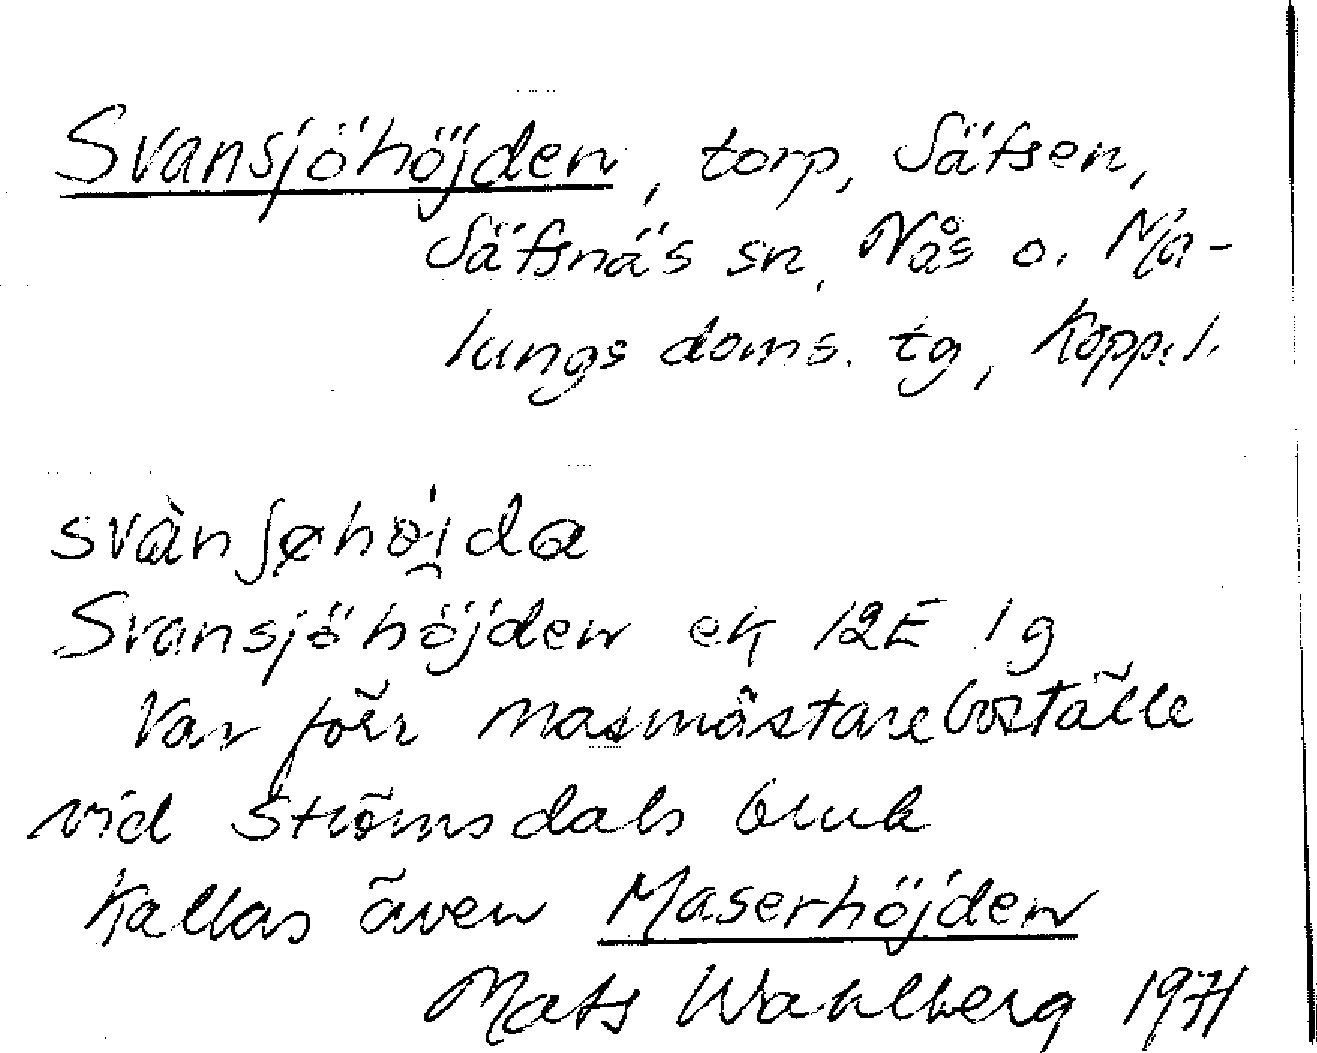 Svansjöhöjden, torp, Säfsen,
Säfsnäs sn, Nås o. Ma-
lungs doms. tg, Kopp. l.
svànʃøhö̀i̯da
Svansjöhöjden ek 12E 1g
Var förr masmästareboställe
vid Strömsdals bruk
Kallas även Maserhöjden
Mats Wahlberg 1971